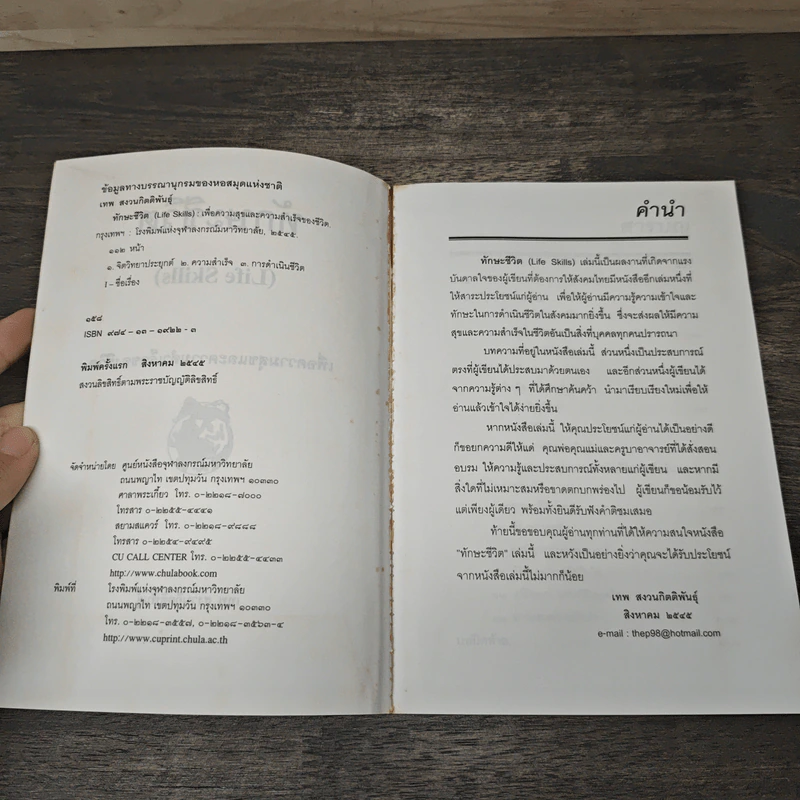 ข้อมูลทางบรรณานุกรมของหอสมุดแห่งชาติ
เทพ สงวนกิตติพันธุ์
ทักษะชีวิต (Life Skills) : เพื่อความสุขและความสำเร็จของชีวิต.
กรุงเทพฯ : โรงพิมพ์แห่งจุฬาลงกรณ์มหาวิทยาลัย, ๒๕๔๕.
๑๑๒ หน้า
๑. จิตวิทยาประยุกต์ ๒. ความสำเร็จ ๓. การดำเนินชีวิต
I - ชื่อเรื่อง
๑๕๘
ISBN ๙๗๔ - ๑๓ - ๑๙๒๒ - ๓
พิมพ์ครั้งแรก สิงหาคม ๒๕๔๕
สงวนลิขสิทธิ์ตามพระราชบัญญัติลิขสิทธิ์
จัดจำหน่ายโดย ศูนย์หนังสือจุฬาลงกรณ์มหาวิทยาลัย
ถนนพญาไท เขตปทุมวัน กรุงเทพฯ ๑๐๓๓๐
ศาลาพระเกี้ยว โทร. ๐-๒๒๑๘-๗๐๐๐
โทรสาร ๐-๒๒๕๕-๔๔๔๑
สยามสแควร์ โทร. ๐-๒๒๑๘-๙๘๘๘
โทรสาร ๐-๒๒๕๔-๙๔๙๕
CU CALL CENTER โทร. ๐-๒๒๕๕-๔๔๓๓
http://www.chulabook.com
พิมพ์ที่ โรงพิมพ์แห่งจุฬาลงกรณ์มหาวิทยาลัย
ถนนพญาไท เขตปทุมวัน กรุงเทพฯ ๑๐๓๓๐
โทร. ๐-๒๒๑๘-๓๕๕๗, ๐-๒๒๑๘-๓๕๖๓-๔
http://www.cuprint.chula.ac.th
คำนำ
ทักษะชีวิต (Life Skills) เล่มนี้เป็นผลงานที่เกิดจากแรง
บันดาลใจของผู้เขียนที่ต้องการให้สังคมไทยมีหนังสืออีกเล่มหนึ่งที่
ให้สาระประโยชน์แก่ผู้อ่าน เพื่อให้ผู้อ่านมีความรู้ความเข้าใจและ
ทักษะในการดำเนินชีวิตในสังคมมากยิ่งขึ้น ซึ่งจะส่งผลให้มีความ
สุขและความสำเร็จในชีวิตอันเป็นสิ่งที่บุคคลทุกคนปรารถนา
บทความที่อยู่ในหนังสือเล่มนี้ ส่วนหนึ่งเป็นประสบการณ์
ตรงที่ผู้เขียนได้ประสบมาด้วยตนเอง และอีกส่วนหนึ่งผู้เขียนได้
จากความรู้ต่าง ๆ ที่ได้ศึกษาค้นคว้า นำมาเรียบเรียงใหม่เพื่อให้
อ่านแล้วเข้าใจได้ง่ายยิ่งขึ้น
หากหนังสือเล่มนี้ ให้คุณประโยชน์แก่ผู้อ่านได้เป็นอย่างดี
ก็ขอยกความดีให้แด่ คุณพ่อคุณแม่และครูบาอาจารย์ที่ได้สั่งสอน
อบรม ให้ความรู้และประสบการณ์ทั้งหลายแก่ผู้เขียน และหากมี
สิ่งใดที่ไม่เหมาะสมหรือขาดตกบกพร่องไป ผู้เขียนก็ขอน้อมรับไว้
แต่เพียงผู้เดียว พร้อมทั้งยินดีรับฟังคำติชมเสมอ
ท้ายนี้ขอขอบคุณผู้อ่านทุกท่านที่ได้ให้ความสนใจหนังสือ
"ทักษะชีวิต" เล่มนี้ และหวังเป็นอย่างยิ่งว่าคุณจะได้รับประโยชน์
จากหนังสือเล่มนี้ไม่มากก็น้อย
เทพ สงวนกิตติพันธุ์
สิงหาคม ๒๕๔๕
e-mail : thep98@hotmail.com